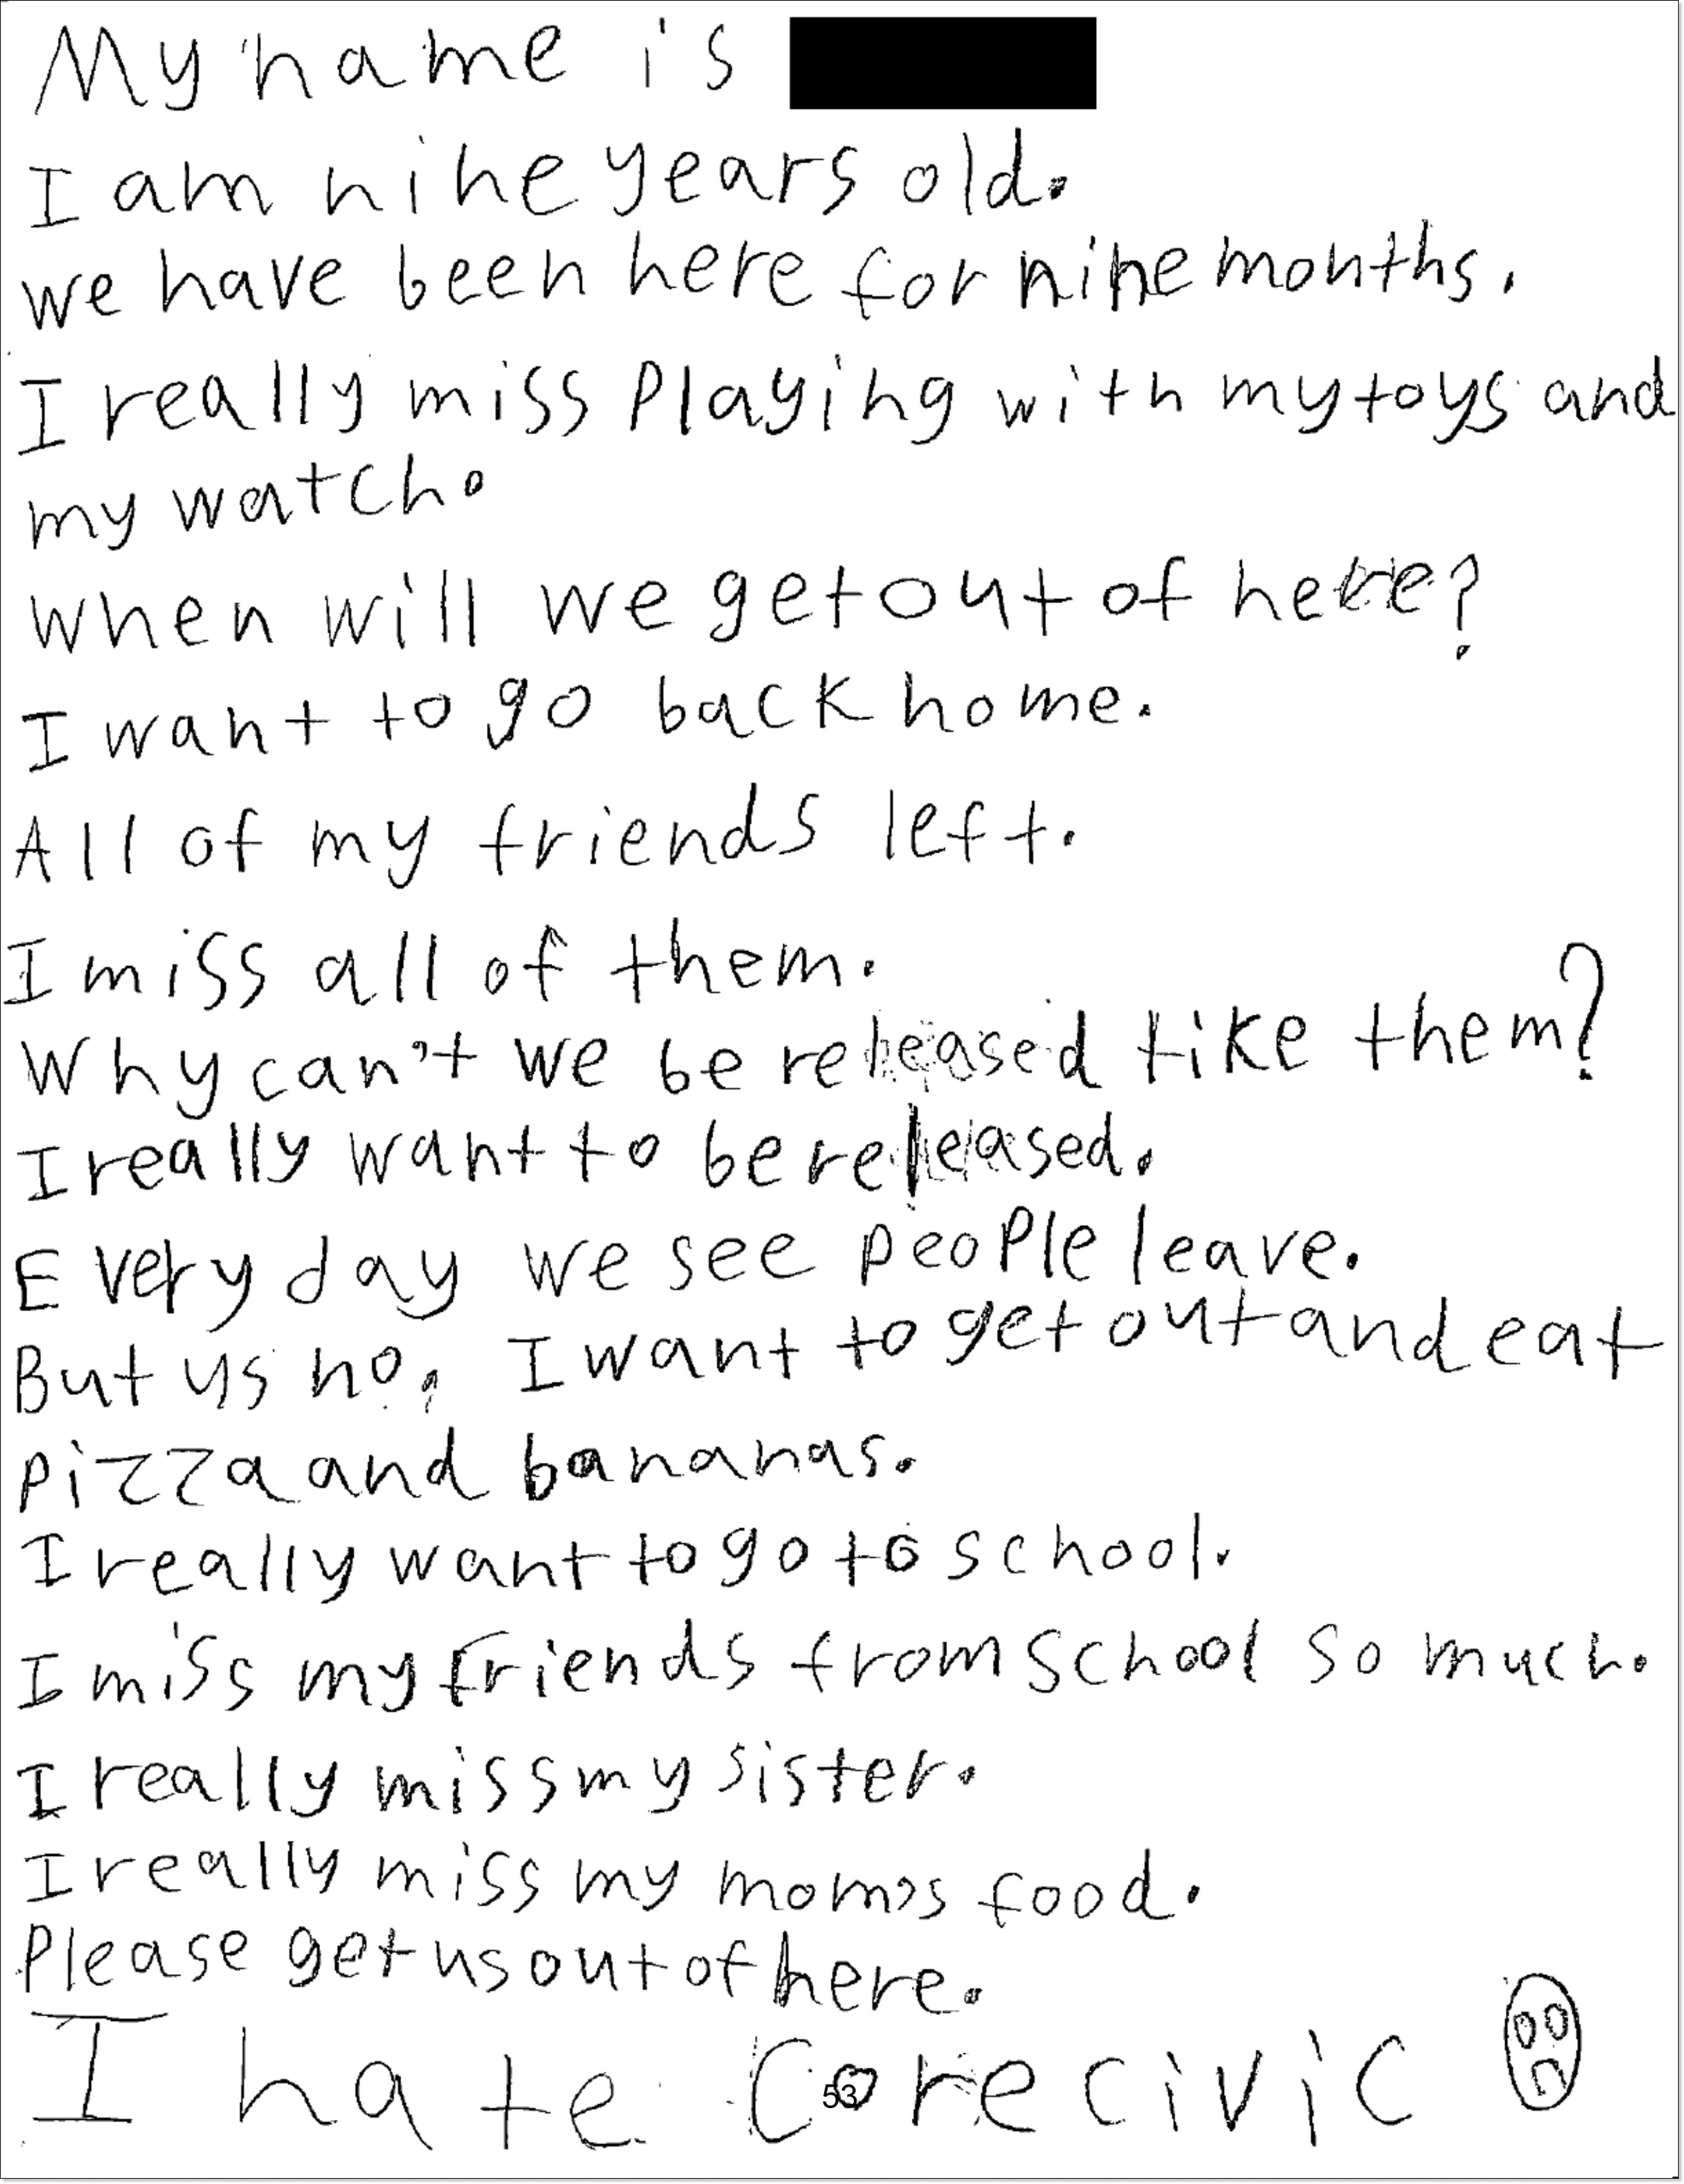 My name is
I am nine years old.
we have been here for nine months.
I really miss Playing with my toys and
my watch.
when will we get out of here?
I want to go back home.
All of my friends left.
I miss all of them.
Why can't we be released like them?
I really want to be released.
Every day we see people leave.
But us no. I want to get out and eat
pizza and bananas.
I really want to go to school.
I miss my friends from school so much.
I really miss my sister.
I really miss my mom's food.
Please get us out of here.
I hate Corecivic
53